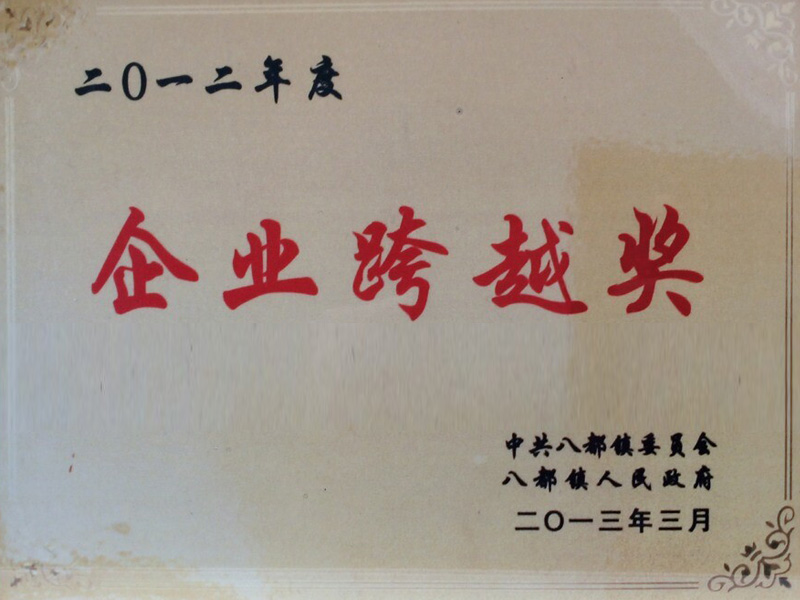 二〇一二年度
企业跨越奖
中共八都镇委员会
八都镇人民政府
二〇一三年三月